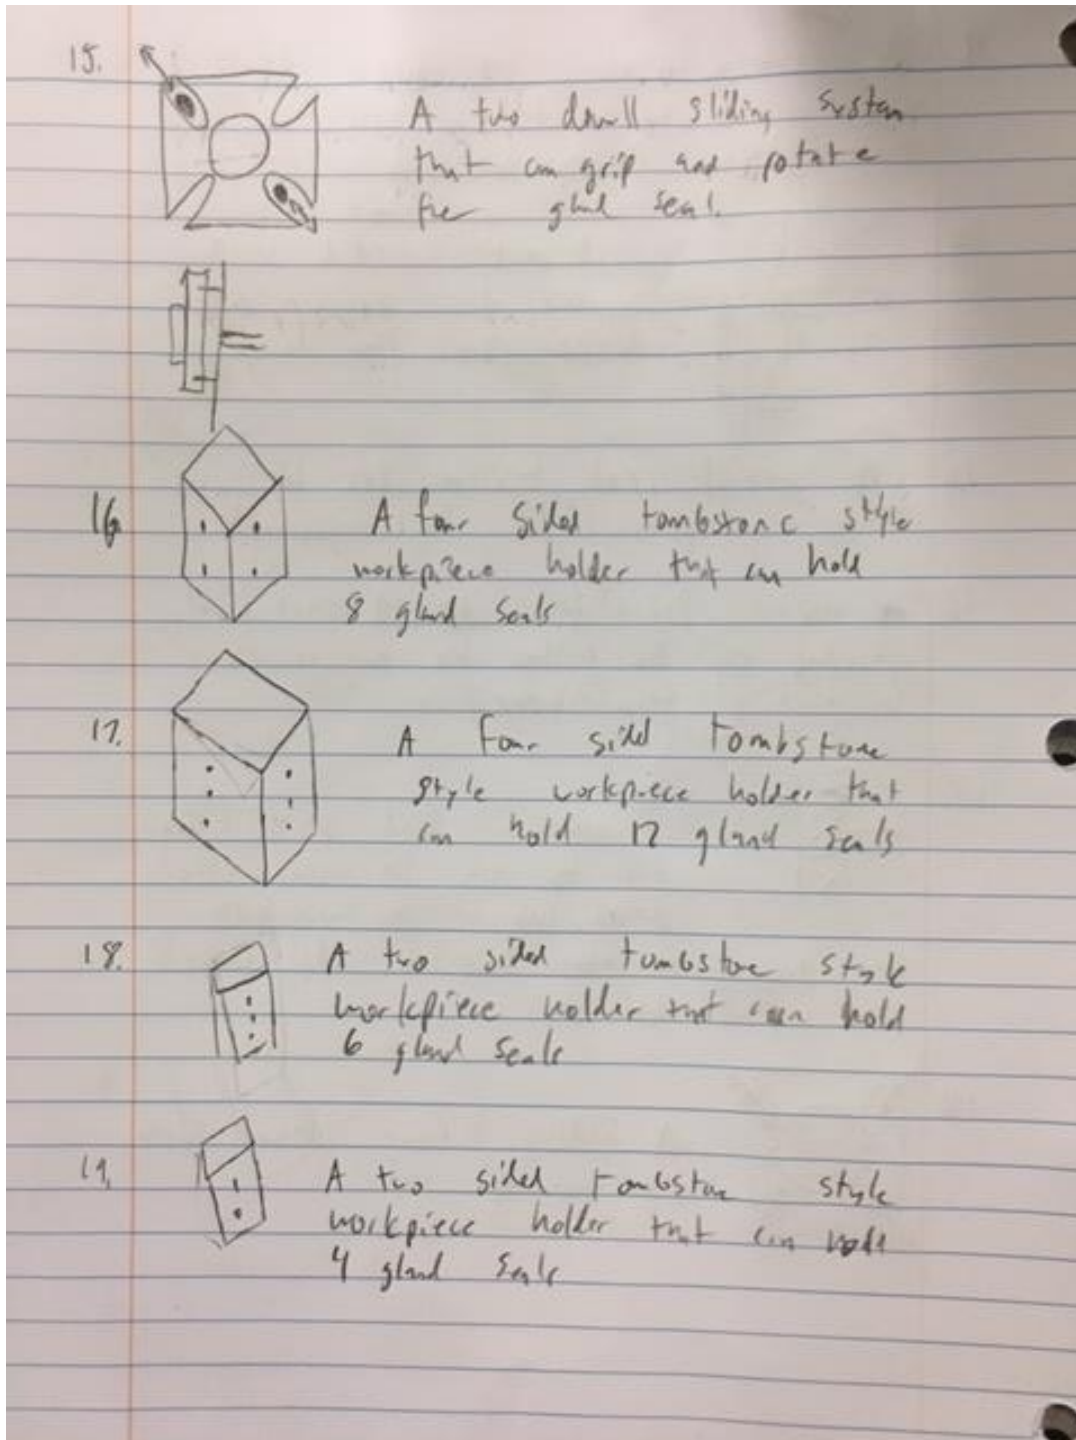 15.
A two dowell sliding system
that can grip and rotate
the gland seal.
16.
A four sided tombstone style
workpiece holder that can hold
8 gland seals
17.
A four sided tombstone
style workpiece holder that
can hold 12 gland seals
18.
A two sided tombstone style
workpiece holder that can hold
6 gland seals
19.
A two sided tombstone style
workpiece holder that can hold
4 gland seals